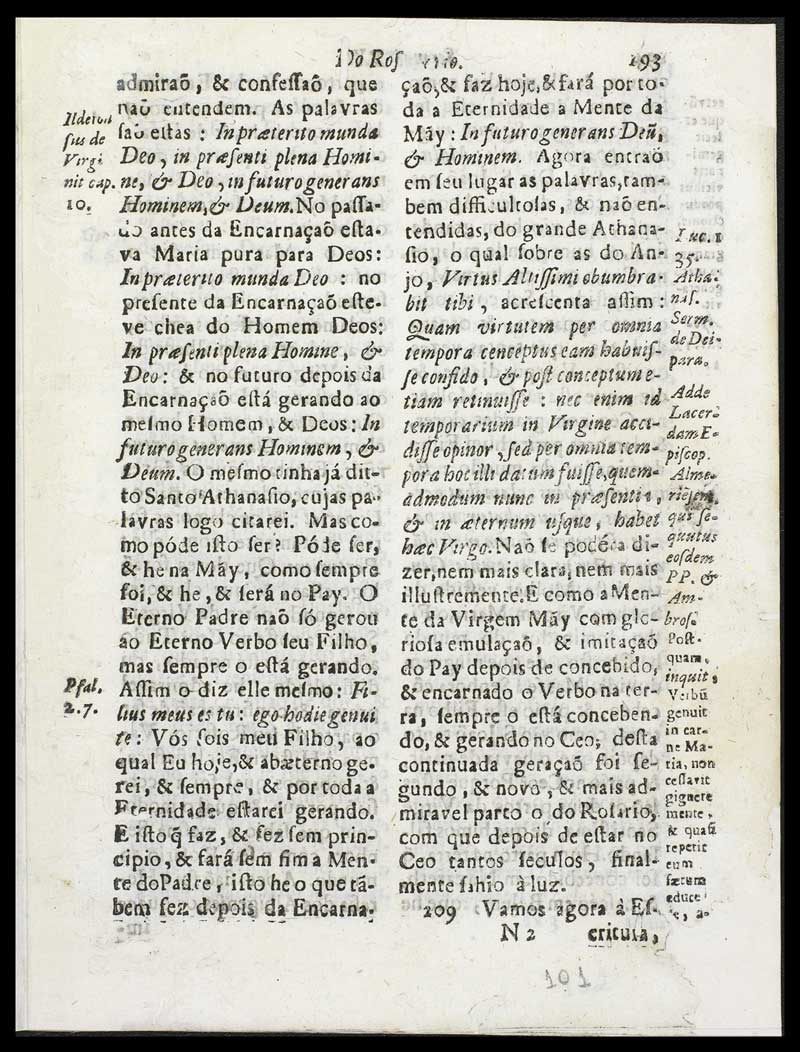 Do Ros rio. 193
admiraõ, & confeſſaõ, que
naõ entendem. As palavras
ſaõ eſtas : In præterito munda
Deo, in præſenti plena Homi-
ne, & Deo, in futuro generans
Hominem, & Deum. No paſſa-
do antes da Encarnaçaõ eſta-
va Maria pura para Deos:
In præterito munda Deo : no
preſente da Encarnaçaõ eſte-
ve chea do Homem Deos:
In præſenti plena Homine, &
Deo: & no futuro depois da
Encarnaçaõ eſtá gerando ao
meſmo Homem, & Deos: In
futuro generans Hominem, &
Deum. O meſmo tinha já dit-
to Santo Athanaſio, cujas pa-
lavras logo citarei. Mas co-
mo póde iſto ſer? Póde ſer,
& he na Mãy, como ſempre
foi, & he, & ſerá no Pay. O
Eterno Padre naõ ſó gerou
ao Eterno Verbo ſeu Filho,
mas ſempre o eſtá gerando.
Aſſim o diz elle meſmo: Fi-
lius meus es tu: ego hodie genui
te: Vós ſois meu Filho, ao
qual Eu hoje, & abæterno ge-
rei, & ſempre, & por toda a
Eternidade eſtarei gerando.
E iſto q̃ faz, & fez ſem prin-
cipio, & fará ſem fim a Men-
te do Padre, iſto he o que tã-
bem fez depois da Encarna-
Ildefon
ſus de
Virgi
nit cap.
10.
Pſal.
2.7.
çaõ, & faz hoje, & fará por to-
da a Eternidade a Mente da
Mãy : In futuro generans Deũ,
& Hominem. Agora entraõ
em ſeu lugar as palavras, tam-
bem difficultoſas, & naõ en-
tendidas, do grande Athana-
ſio, o qual ſobre as do An-
jo, Virtus Altiſſimi obumbra-
bit tibi, acreſcenta aſſim:
Quam virtutem per omnia
tempora conceptus eam habuiſ-
ſe confido, & poſt conceptum e-
tiam retinuiſſe : nec enim id
temporarium in Virgine acci-
diſſe opinor, ſed per omnia tem-
pora hoc illi datum fuiſſe, quem-
admodum nunc in præſenti,
& in æternum uſque, habet
hæc Virgo. Naõ ſe podéra di-
zer, nem mais clara, nem mais
illuſtremente. E como a Men-
te da Virgem Mãy com glo-
rioſa emulaçaõ, & imitaçaõ
do Pay depois de concebido,
& encarnado o Verbo na ter-
ra, ſempre o eſtá conceben-
do, & gerando no Ceo; deſta
continuada geraçaõ foi ſe-
gundo, & novo, & mais ad-
miravel parto o do Roſario,
com que depois de eſtar no
Ceo tantos ſeculos, final-
mente ſahio à luz.
209 Vamos agora à Eſ-
N 2 critura,
Luc. 1
35.
Atha-
naſ.
Serm.
de Dei-
para.
Adde
Lacer-
dam E-
piſcop.
Alme-
rienſem,
qui ſe-
quutus
eoſdem
PP. &
Am-
broſ.
Poſt-
quam,
inquit,
Verbũ
genuit
in car-
ne Ma-
ria, non
ceſſavit
gignere
mente,
& quaſi
repetit
eum
fætum
educe
a-
101